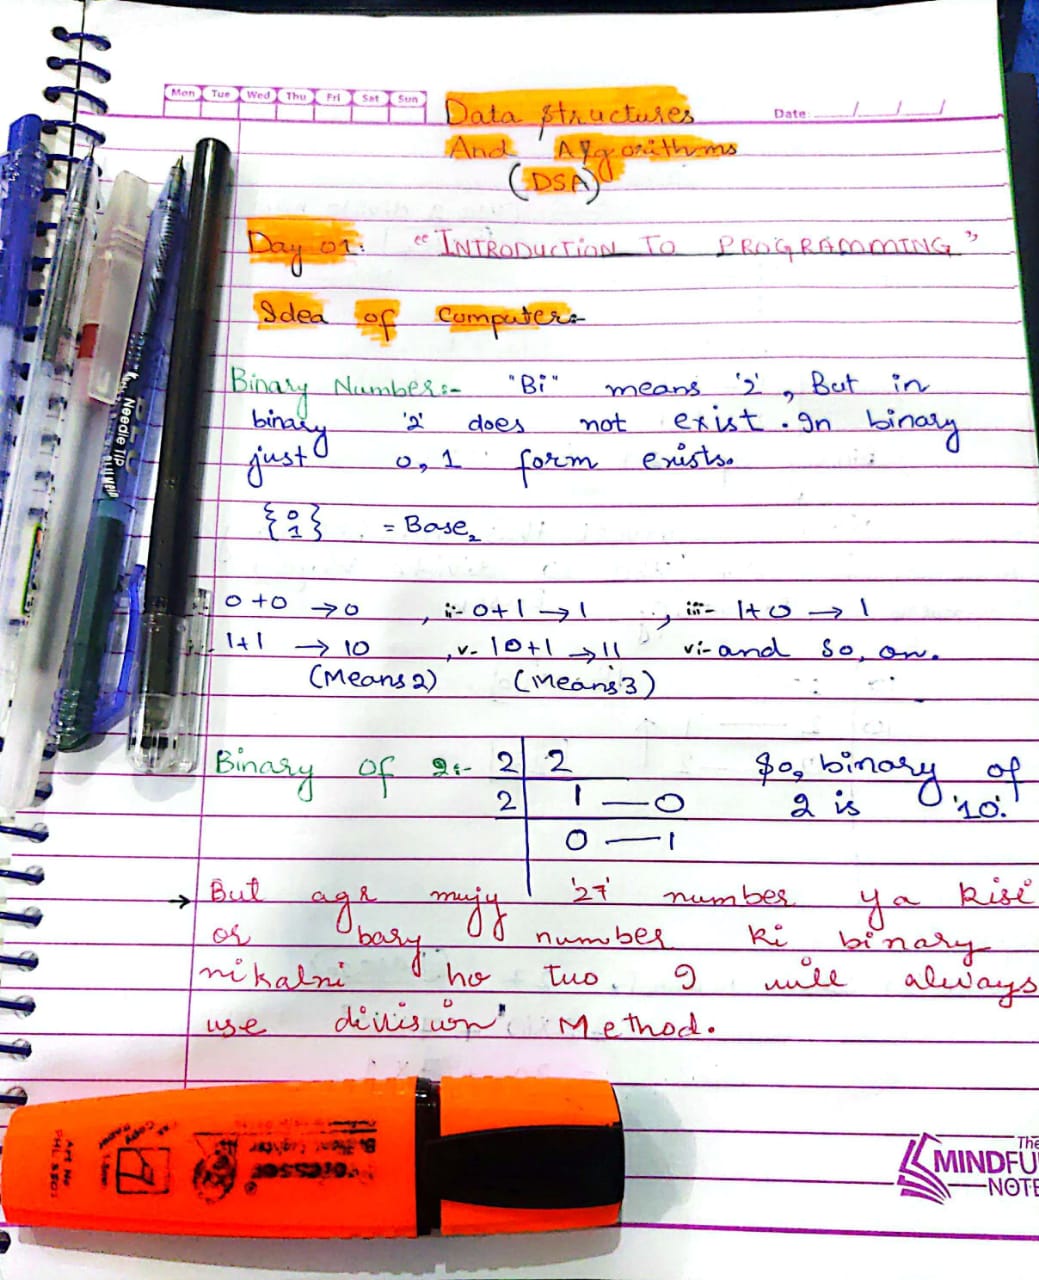 Mon Tue Wed Thu Fri Sat Sun
Date: / / /
Data structures
And Algorithms
(DSA)
Day 01: "INTRODUCTION TO PROGRAMMING"
Idea of Computer:-
Binary Number:- "Bi" means '2', But in
binary '2' does not exist. In binary
just 0, 1 form exists.
{0
1} = Base2
0+0 → 0 , ii- 0+1 → 1 , iii- 1+0 → 1
1+1 → 10 , v- 10+1 → 11 vi- and so, on.
(Means 2) (Means 3)
Binary Of 2:- 2 | 2 So, binary of
2 | 1 — 0 2 is '10'.
0 — 1
→ But agr mujy '27' number ya kisi
or bary number ki binary
nikalni ho tuo. I will always
use division Method.
Needle Tip
The
MINDFU
NOTE